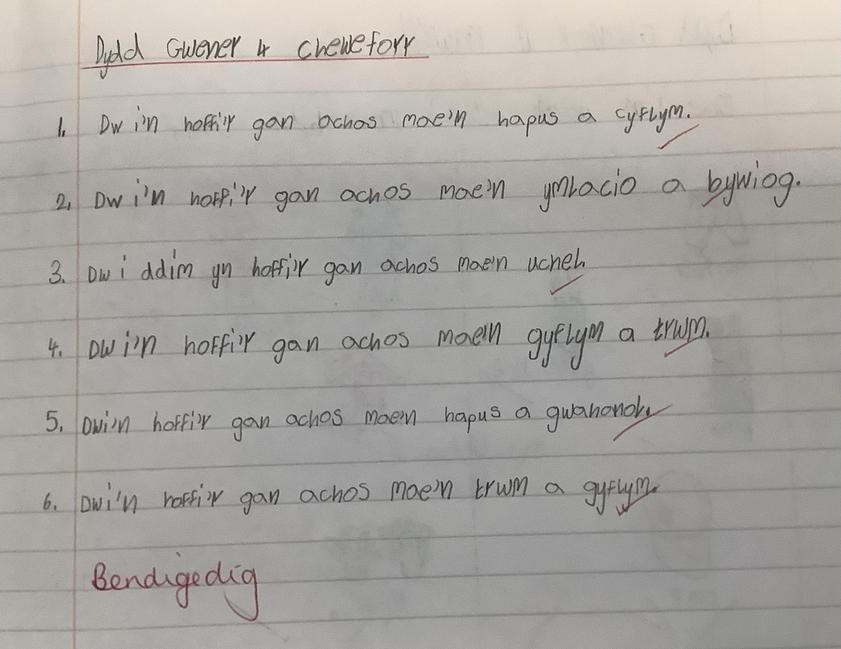 Dydd Gwener 4 cheweforr
1. Dw i'n hoffi'r gan achos mae'n hapus a cyflym.
2. Dw i'n hoffi'r gan achos mae'n ymlacio a bywiog.
3. Dw i ddim yn hoffi'r gan achos mae'n uchel.
4. Dw i'n hoffi'r gan achos mae'n gyflym a trwm.
5. Dwi'n hoffi'r gan achos mae'n hapus a gwahanol.
6. Dwi'n hoffi'r gan achos mae'n trwm a gyflym.
Bendigedig